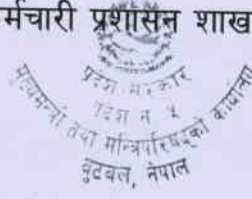 र्मचारी प्रशासन शाख
प्रदेश सरकार
प्रदेश नं ५
मुख्यमन्त्री तथा मन्त्रिपरिषद्को कार्यालय
बुटवल, नेपाल